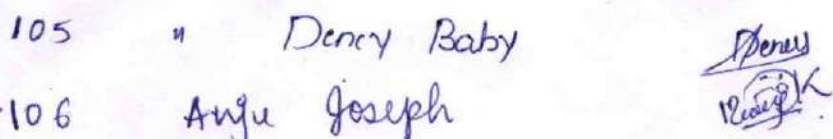 105 " Dency Baby
106 Anju Joseph